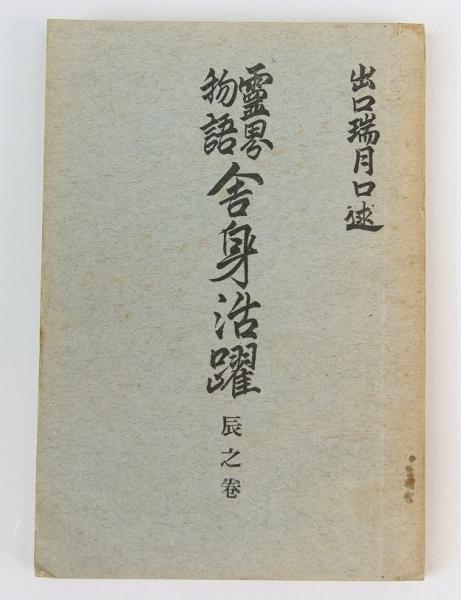 出口瑞月口述
靈界物語 舎身活躍 辰之卷